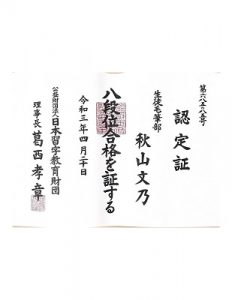 認定証
生徒毛筆部
秋山文乃
八段位合格を証する
令和三年四月二十日
公益財団法人日本習字教育財団
理事長 葛西孝章